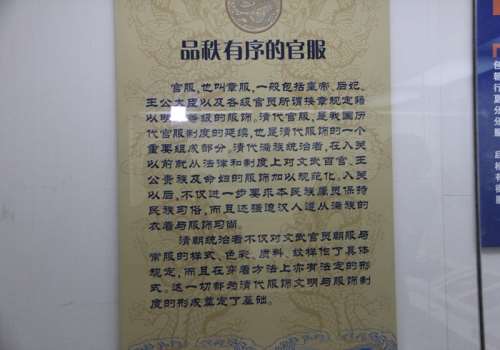 品秩有序的官服
官服，也叫章服，一般包括皇帝、后妃、
王公大臣以及各级官员所谓按章规定藉
以明辨等级的服饰。清代官服，是我国历
代官服制度的延续，也是清代服饰的一个
重要组成部分。清代满族统治者，在入关
以前就从法律和制度上对文武百官、王
公贵族及命妇的服饰加以规范化。入关
以后，不仅进一步要求本民族廉员保持
民族习俗，而且还强迫汉人遵从满族的
衣着与服饰习尚。
清朝统治者不仅对文武官员朝服与
常服的样式、色彩、质料、纹样作了具体
规定，而且在穿着方法上亦有法定的形
式。这一切都为清代服饰文明与服饰制
度的形成奠定了基础。